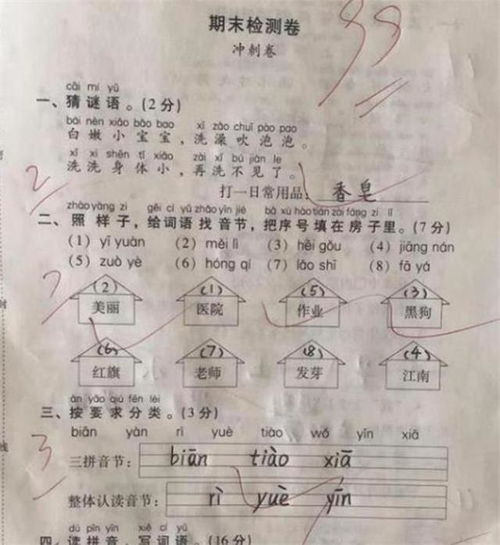 期末检测卷
冲刺卷
99
cāi mí yǔ
一、猜谜语。(2分)
bái nèn xiǎo bǎo bao xǐ zǎo chuī pào pao
白嫩小宝宝,洗澡吹泡泡。
xǐ xǐ shēn tǐ xiǎo zài xǐ bú jiàn le
洗洗身体小,再洗不见了。
2
打一日常用品: 香皂
zhào yàng zi gěi cí yǔ zhǎo yīn jié bǎ xù hào tián zài fáng zi lǐ
二、照样子,给词语找音节,把序号填在房子里。(7分)
(1) yī yuàn (2) měi lì (3) hēi gǒu (4) jiāng nán
(5) zuò yè (6) hóng qí (7) lǎo shī (8) fā yá
7
(2) (1) (5) (3)
美丽 医院 作业 黑狗
(6) (7) (8) (4)
红旗 老师 发芽 江南
àn yāo qiú fēn lèi
三、按要求分类。(3分)
biān yàn rì yuè tiào wǒ yīn xiā
3
三拼音节: biān tiào xiā
整体认读音节: rì yuè yīn
dú pīn yīn xiě cí yǔ
四、读拼音,写词语。(16分)